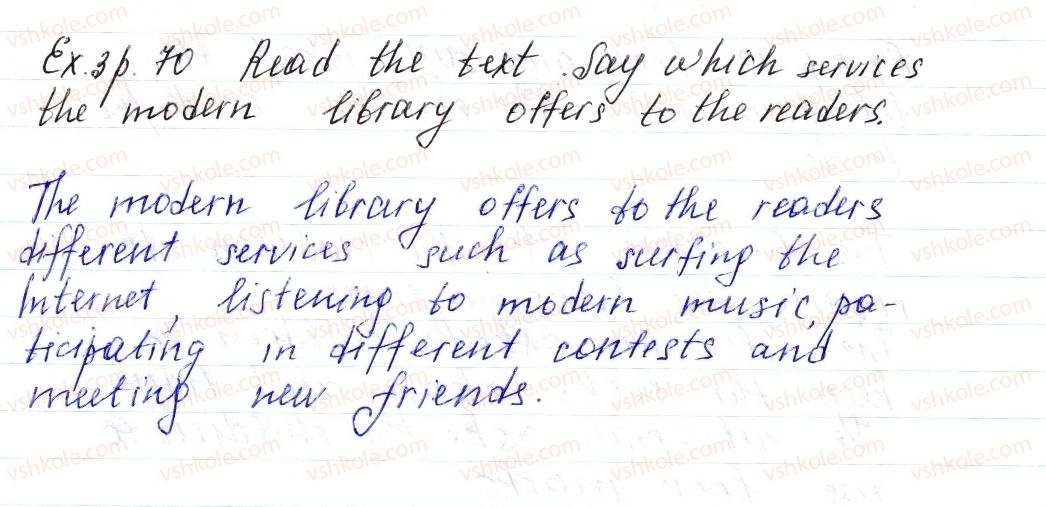 Ex. 3 p. 70 Read the text. Say which services
the modern library offers to the readers.
The modern library offers to the readers
different services such as surfing the
Internet, listening to modern music, pa-
ticipating in different contests and
meeting new friends.